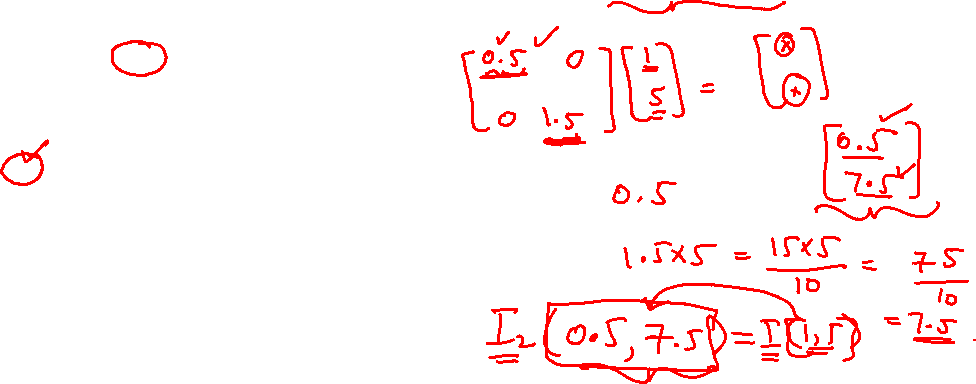 [0.5 0 [1 = [x
0 1.5] 5] x]
[0.5
7.5]
0.5
1.5×5 = 15×5/10 = 75/10
I₂(0.5, 7.5) = I(1,5) = 7.5